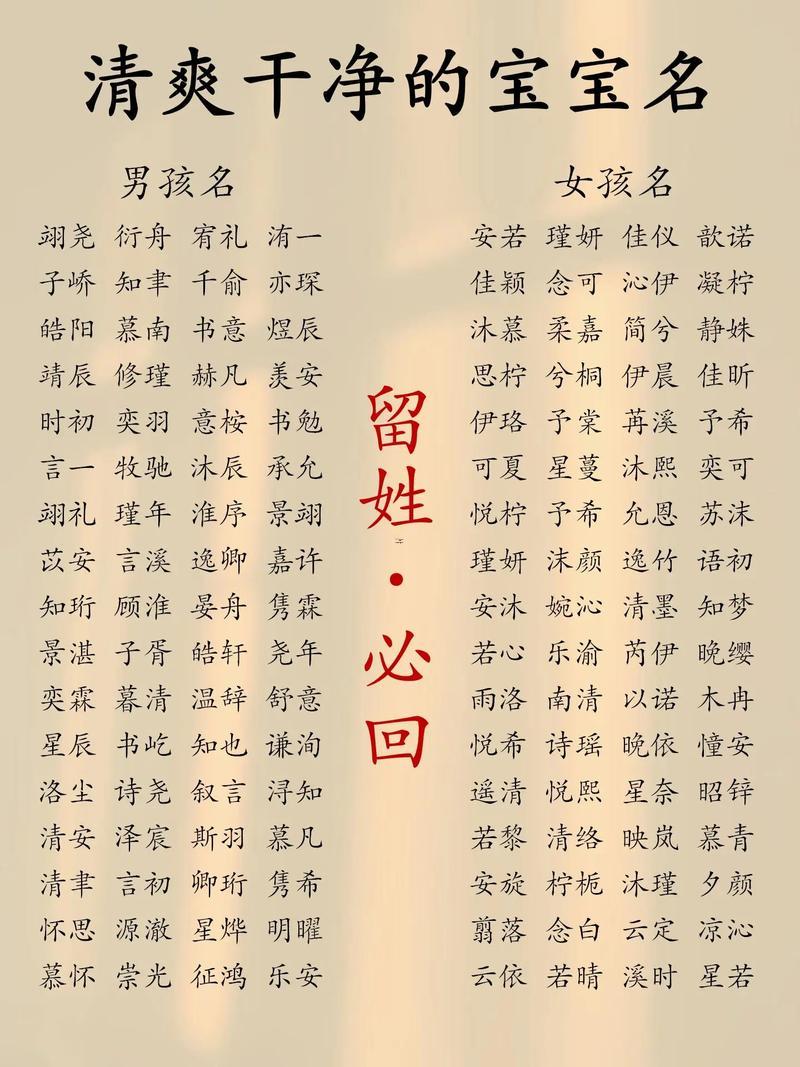 清爽干净的宝宝名
男孩名
翊尧 衍舟 宥礼 洧一
子峤 知聿 千俞 亦琛
皓阳 慕南 书意 煜辰
靖辰 修瑾 赫凡 羡安
时初 奕羽 意桉 书勉
言一 牧驰 沐辰 承允
翊礼 瑾年 淮序 景翊
苡安 言溪 逸卿 嘉许
知珩 顾淮 晏舟 隽霖
景湛 子胥 皓轩 尧年
奕霖 暮清 温辞 舒意
星辰 书屹 知也 谦洵
洛尘 诗尧 叙言 浔知
清安 泽宸 斯羽 慕凡
清聿 言初 卿珩 隽希
怀思 源澈 星烨 明曜
慕怀 崇光 征鸿 乐安
留姓·必回
女孩名
安若 瑾妍 佳仪 歆诺
佳颖 念可 沁伊 凝柠
沐慕 柔嘉 简兮 静姝
思柠 兮桐 伊晨 佳昕
伊珞 予棠 苒溪 予希
可夏 星蔓 沐熙 奕可
悦柠 予希 允恩 苏沫
瑾妍 沫颜 逸竹 语初
安沐 婉沁 清墨 知梦
若心 乐渝 芮伊 晚缨
雨洛 南清 以诺 木冉
悦希 诗瑶 晚依 憧安
遥清 悦熙 星奈 昭锌
若黎 清络 映岚 慕青
安旋 柠栀 沐瑾 夕颜
翦落 念白 云定 凉沁
云依 若晴 溪时 星若